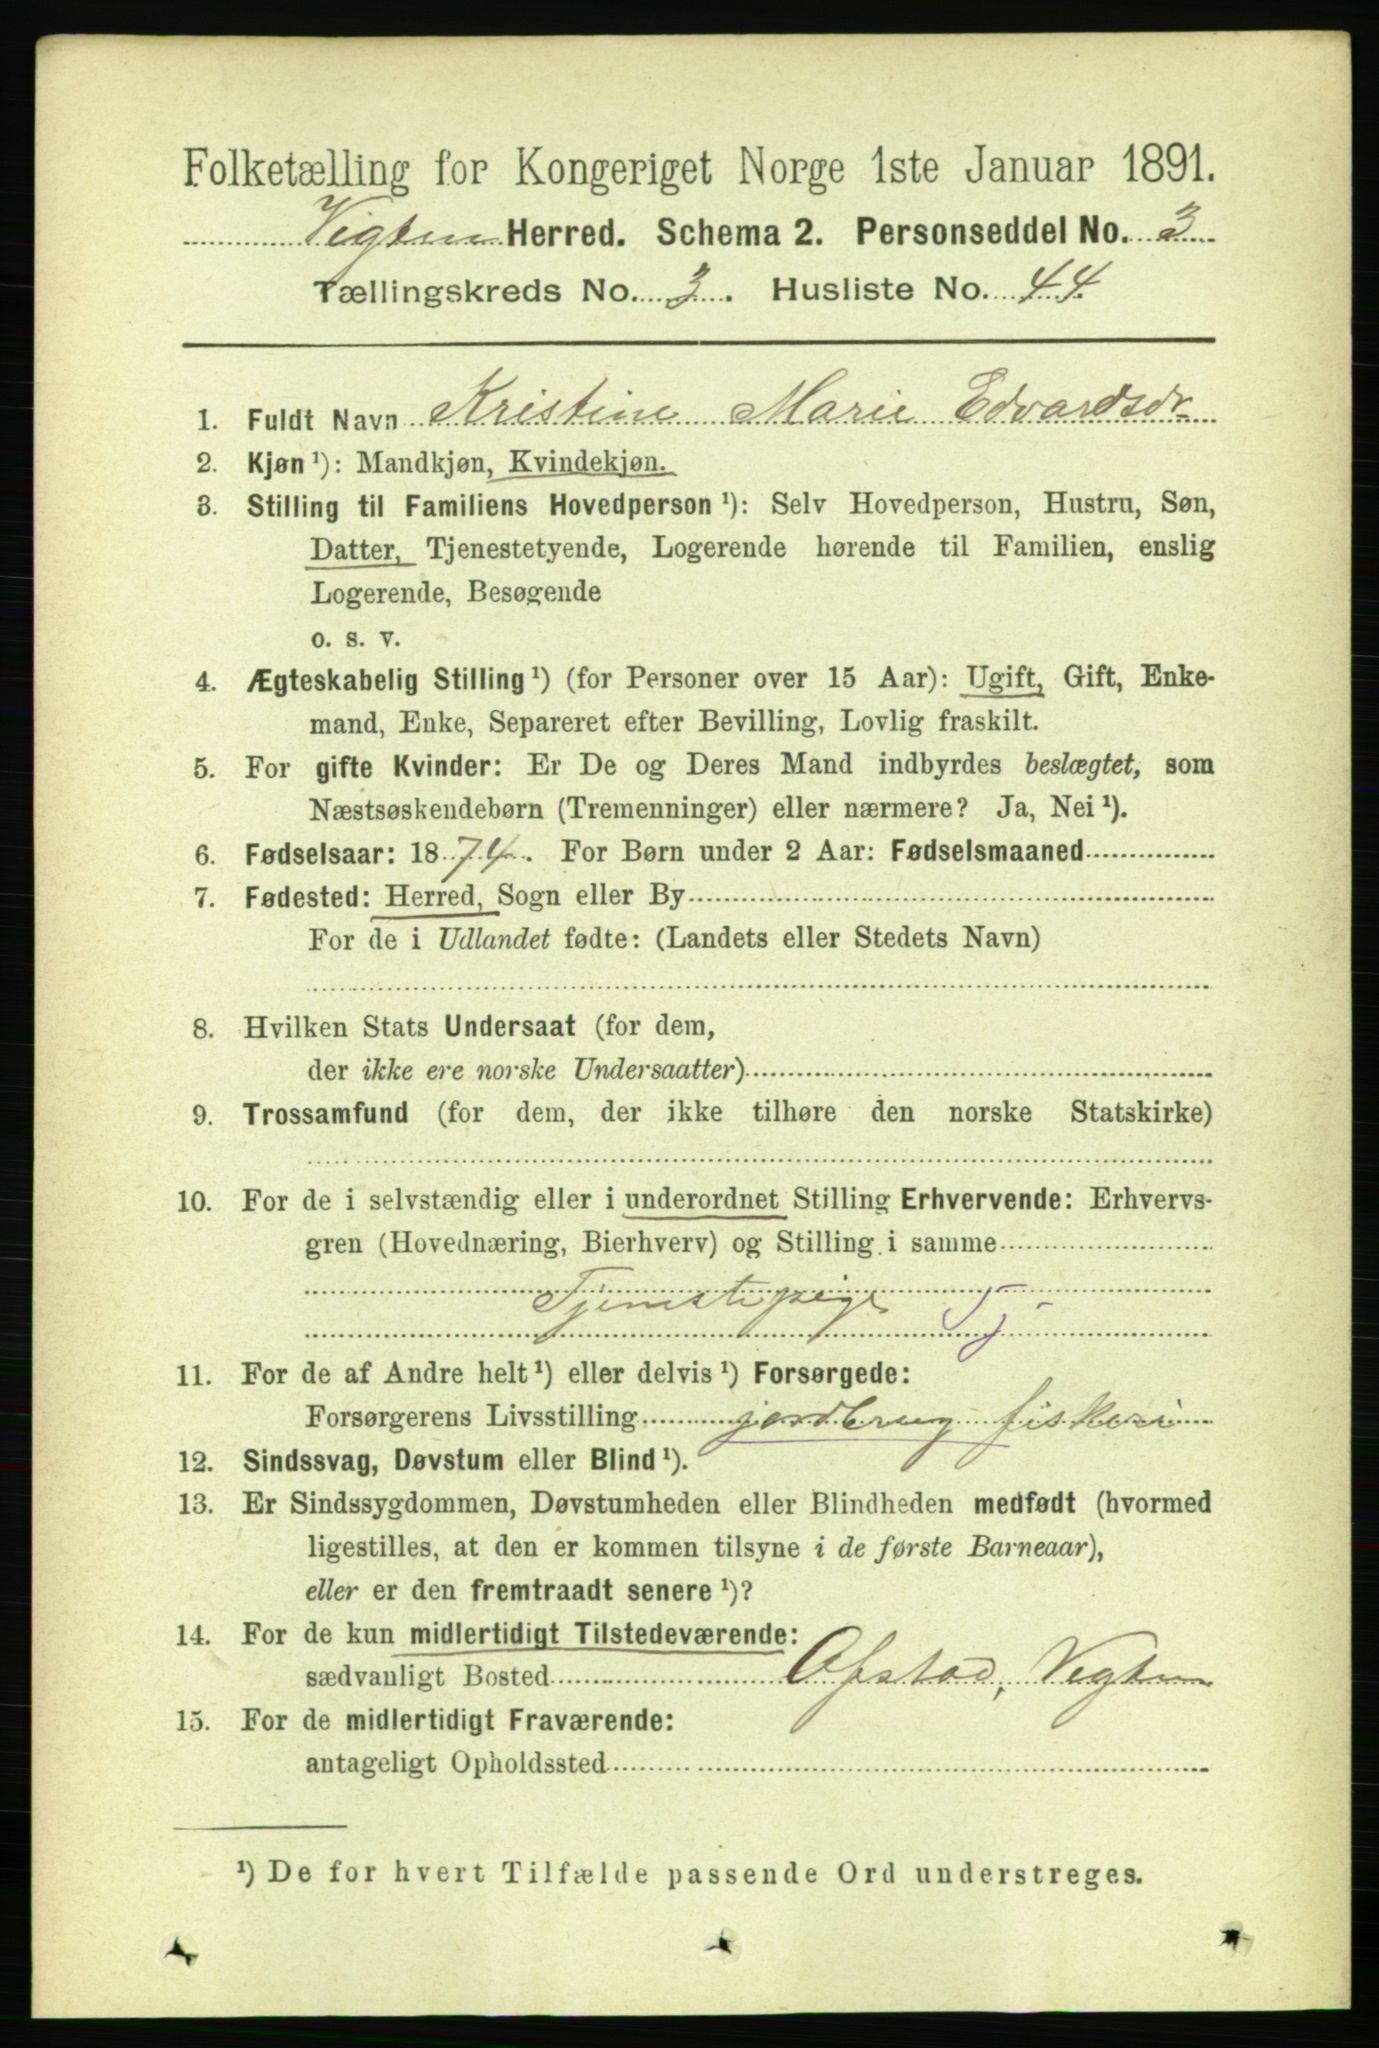 Folketælling for Kongeriget Norge 1ste Januar 1891.
Vigten Herred. Schema 2. Personseddel No. 3
Tællingskreds No. 3. Husliste No. 44
1. Fuldt Navn Kristine Marie Edvardsdr
2. Kjøn ¹): Mandkjøn, Kvindekjøn.
3. Stilling til Familiens Hovedperson ¹): Selv Hovedperson, Hustru, Søn,
Datter, Tjenestetyende, Logerende hørende til Familien, enslig
Logerende, Besøgende
o. s. v.
4. Ægteskabelig Stilling ¹) (for Personer over 15 Aar): Ugift, Gift, Enke-
mand, Enke, Separeret efter Bevilling, Lovlig fraskilt.
5. For gifte Kvinder: Er De og Deres Mand indbyrdes beslægtet, som
Næstsøskendebørn (Tremenninger) eller nærmere? Ja, Nei ¹).
6. Fødselsaar: 1874. For Børn under 2 Aar: Fødselsmaaned
7. Fødested: Herred, Sogn eller By
For de i Udlandet fødte: (Landets eller Stedets Navn)
8. Hvilken Stats Undersaat (for dem,
der ikke ere norske Undersaatter)
9. Trossamfund (for dem, der ikke tilhøre den norske Statskirke)
10. For de i selvstændig eller i underordnet Stilling Erhvervende: Erhvervs-
gren (Hovednæring, Bierhverv) og Stilling i samme
Tjenestepige Tj
11. For de af Andre helt ¹) eller delvis ¹) Forsørgede:
Forsørgerens Livsstilling jordbrug fiskeri
12. Sindssvag, Døvstum eller Blind ¹).
13. Er Sindssygdommen, Døvstumheden eller Blindheden medfødt (hvormed
ligestilles, at den er kommen tilsyne i de første Barneaar),
eller er den fremtraadt senere ¹)?
14. For de kun midlertidigt Tilstedeværende:
sædvanligt Bosted Ofstad, Vegten
15. For de midlertidigt Fraværende:
antageligt Opholdssted
¹) De for hvert Tilfælde passende Ord understreges.